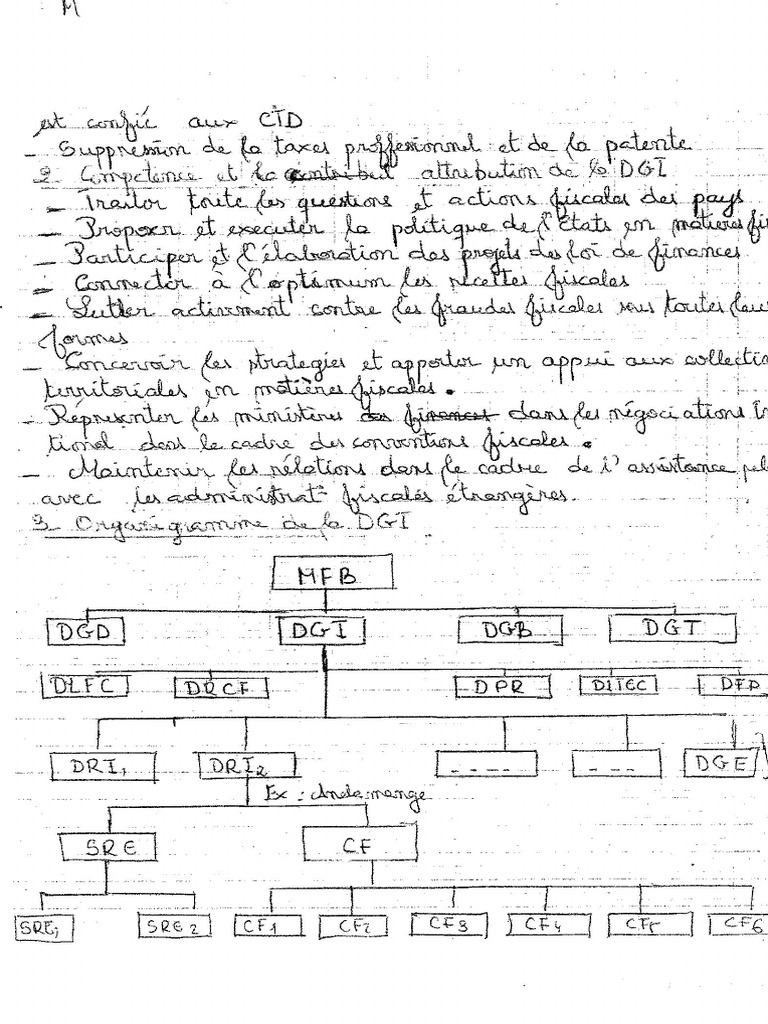 M
est confié aux CTD
- Suppression de la taxes proffessionnel et de la patente
2- Competence et la attribution de la DGI
- Traitor toute les questions et actions fiscales des pays
- Proposer et executer la politique de l'Etats en matières
- Participer et l'élaboration des projets des loi de finances
- Connecter à l'optimum les recettes fiscales
- Lutter activment contre les fraudes fiscales sous toutes
formes
- Concervoir les strategies et apporter un appui aux
territoriales en matières fiscales.
- Répresenter les ministères des finances dans les négociations
tional dans le cadre des conventions fiscales.
- Maintenir les rélations dans le cadre de l'assistance
avec les administrat° fiscales étrangères.
3- Organigramme de la DGI
MFB
DGD DGI DGB DGT
DLFC DRCF DPR DITEC DFP
DRI1 DRI2 ---- --- DGE
Ex:
SRE CF
SRE1 SRE2 CF1 CF2 CF3 CF4 CF5 CF6